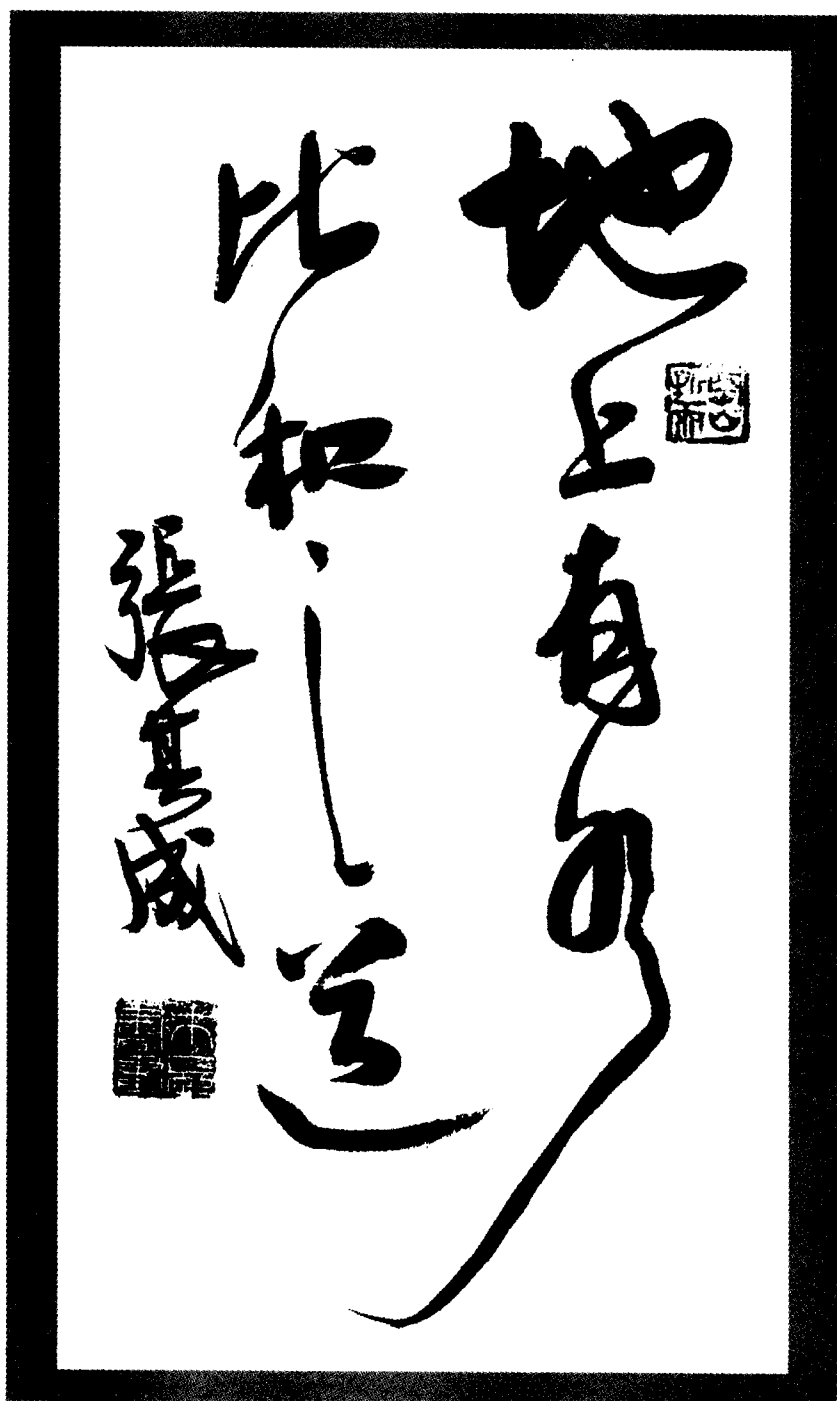 地上有水
比和之道
張其成